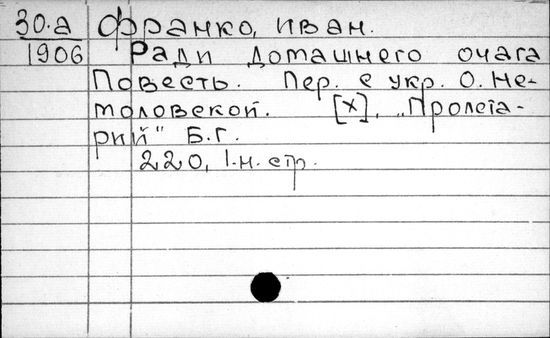 30.а Франко, Иван.
1906 Ради домашнего очага
Повесть. Пер. с укр. О. Не-
моловской. [X], „Пролета-
рий" Б.Г.
220, 1 н. стр.